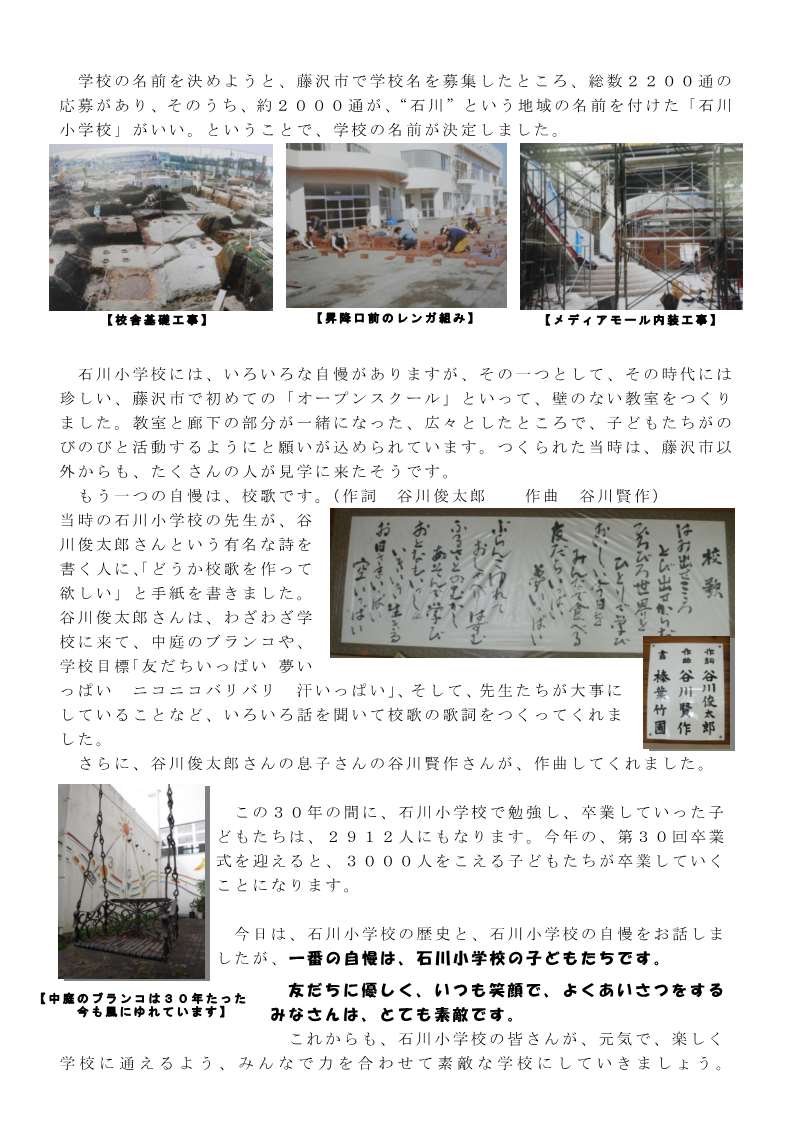 学校の名前を決めようと、藤沢市で学校名を募集したところ、総数２２００通の
応募があり、そのうち、約２０００通が、“石川”という地域の名前を付けた「石川
小学校」がいい。ということで、学校の名前が決定しました。
【校舎基礎工事】
【昇降口前のレンガ組み】
【メディアモール内装工事】
石川小学校には、いろいろな自慢がありますが、その一つとして、その時代には
珍しい、藤沢市で初めての「オープンスクール」といって、壁のない教室をつくり
ました。教室と廊下の部分が一緒になった、広々としたところで、子どもたちがの
びのびと活動するようにと願いが込められています。つくられた当時は、藤沢市以
外からも、たくさんの人が見学に来たそうです。
もう一つの自慢は、校歌です。（作詞　谷川俊太郎　　作曲　谷川賢作）
当時の石川小学校の先生が、谷
川俊太郎さんという有名な詩を
書く人に、「どうか校歌を作って
欲しい」と手紙を書きました。
谷川俊太郎さんは、わざわざ学
校に来て、中庭のブランコや、
学校目標「友だちいっぱい　夢い
っぱい　ニコニコバリバリ　汗いっぱい」、そして、先生たちが大事に
していることなど、いろいろ話を聞いて校歌の歌詞をつくってくれま
した。
校歌
はお出せこころ
とび出せからだ
ひとりで学び
みんなで食べる
友だちいっぱい
夢いっぱい
ぶらんこゆれて
おしゃべりはずむ
ふるさとのむかし
あそんで学び
いきいき生きる
お日さまいっぱい
空いっぱい
作詞　谷川俊太郎
作曲　谷川賢作
書　榛葉竹園
さらに、谷川俊太郎さんの息子さんの谷川賢作さんが、作曲してくれました。
この３０年の間に、石川小学校で勉強し、卒業していった子
どもたちは、２９１２人にもなります。今年の、第３０回卒業
式を迎えると、３０００人をこえる子どもたちが卒業していく
ことになります。
今日は、石川小学校の歴史と、石川小学校の自慢をお話しま
したが、一番の自慢は、石川小学校の子どもたちです。
【中庭のブランコは３０年たった
今も風にゆれています】
友だちに優しく、いつも笑顔で、よくあいさつをする
みなさんは、とても素敵です。
これからも、石川小学校の皆さんが、元気で、楽しく
学校に通えるよう、みんなで力を合わせて素敵な学校にしていきましょう。